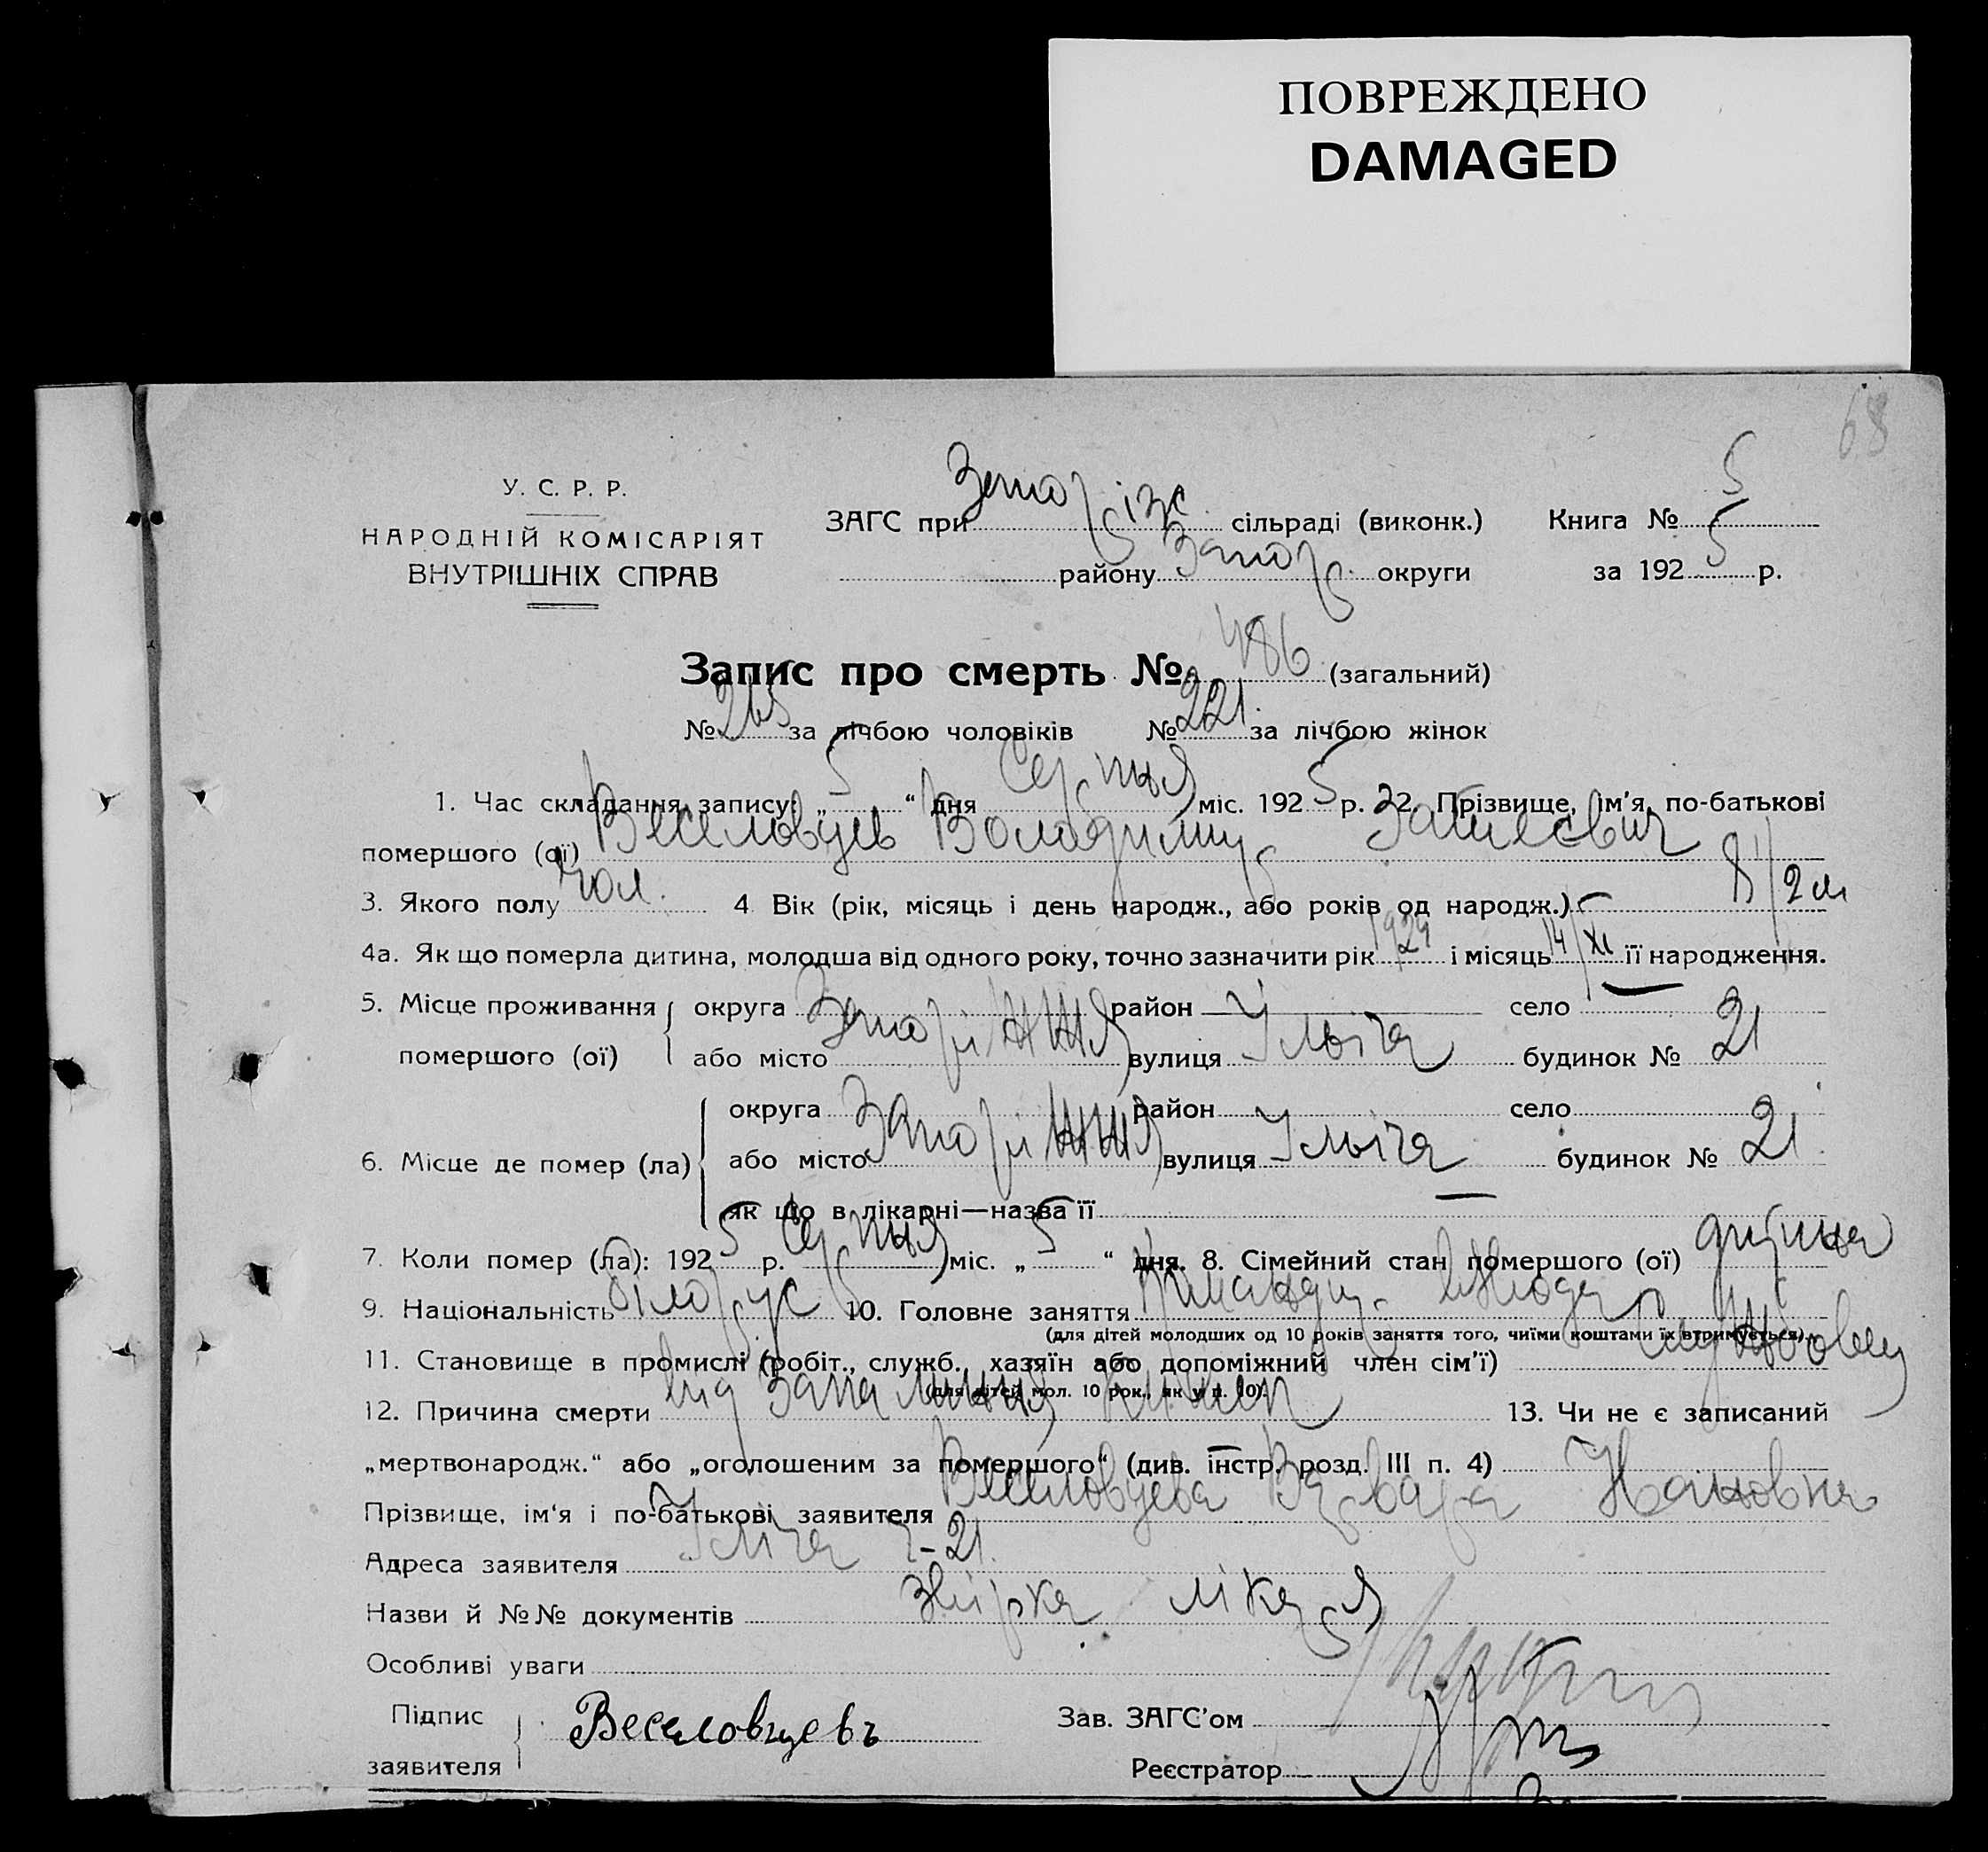 ПОВРЕЖДЕНО
DAMAGED
68
У. С. Р. Р.
НАРОДНІЙ КОМІСАРІЯТ
ВНУТРІШНІХ СПРАВ
ЗАГС при Запоріж сільраді (виконк.) Книга № 5
району Запор. округи за 1925 р.
Запис про смерть № 486 (загальний)
№ 265 за лічбою чоловіків № 221. за лічбою жінок
1. Час складання запису: „5“ дня Серпня міс. 1925 р. 2. Прізвище, ім'я, по-батькові
помершого (ої) Веселовцев Володимир
3. Якого полу чол. 4 Вік (рік, місяць і день народж., або років од народж.) 8 1/2 м
4а. Як що померла дитина, молодша від одного року, точно зазначити рік 1924 і місяць 14/XI її народження.
5. Місце проживання помершого (ої) округа район село
або місто Запоріжжя вулиця Ільіча будинок № 21
6. Місце де помер (ла) округа район село
або місто Запоріжжя вулиця Ільіча будинок № 21
як що в лікарні—назва її
7. Коли помер (ла): 1925 р. Серпня міс. „5“ дня. 8. Сімейний стан помершого (ої) дитина
9. Національність білорус 10. Головне заняття
(для дітей молодших од 10 років заняття того, чиїми коштами їх втримується)
11. Становище в промислі (робіт., служб., хазяїн або допоміжний член сім'ї) Службовец
(для дітей мол. 10 рок., як у п. 10).
12. Причина смерти від запалення кишек 13. Чи не є записаний
„мертвонародж.“ або „оголошеним за помершого“ (див. інстр. розд. III п. 4)
Прізвище, ім'я і по-батькові заявителя Веселовцева Варвара
Адреса заявителя Ілліча 21.
Назви й №№ документів лікаря
Особливі уваги
Підпис заявителя Веселовцевъ Зав. ЗАГС'ом
Реєстратор